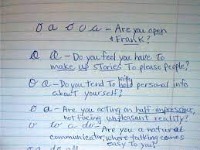 o a o o a - Are you open
& Frank?
Q Q - Do you feel you have To
make up stories To please people?
O a - Do you tend To help personal info
about yourself?
O a - Are you acting on half impressions,
not facing unpleasant reality?
to a do - Are you a natural
communicator, where talking comes
easy to you?